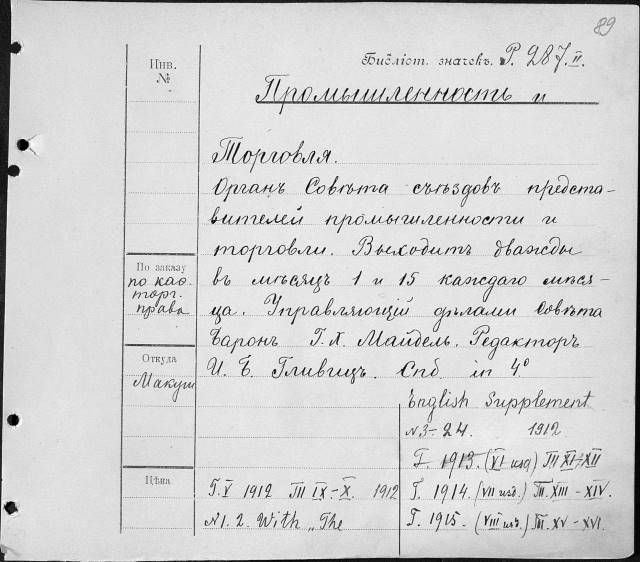 89
Библіот. значекъ. P. 287.II.
Инв.
№
Промышленность и
Торговля.
Органъ Совѣта съѣздовъ предста-
вителей промышленности и
торговли. Выходитъ дважды
въ мѣсяцъ 1 и 15 каждаго мѣся-
ца. Управляющій дѣлами Совѣта
Баронъ Г. Х. Майдель. Редакторъ
И. Б. Гливицъ. Спб in 4°
По заказу
по каѳ.
торг.
права
Откуда
Макуш
Цѣна
Г. V 1912 TII IX-X. 1912
N 1. 2. With „The
English Supplement
N 3-24. 1912
Г. 1913. (VI изд) TII XI-XII
Г. 1914. (VII изд.) TII. XIII - XIV.
Г. 1915. (VIII изд.) TII. XV - XVI.